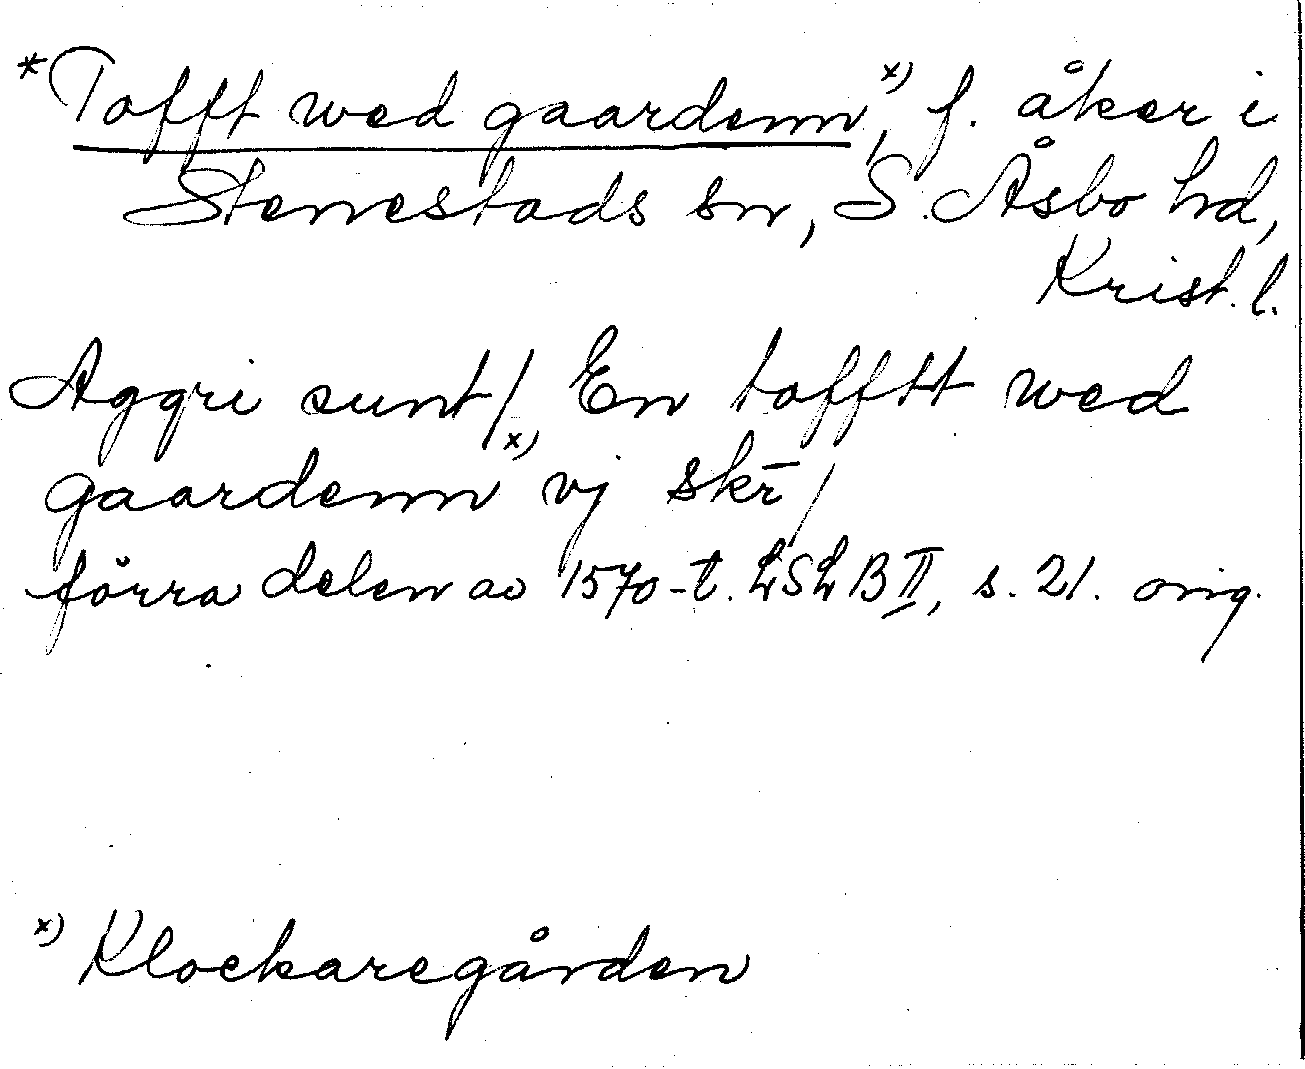 *Tofft wed gaardenn x), f. åker i
Stenestads sn, S. Åsbo hd,
Krist. l.
Aggri sunt/ En tofftt wed
gaardenn x) vj skr̄/
förra delen av 1570-t. LSLB II, s. 21. orig.
x) Klockaregården